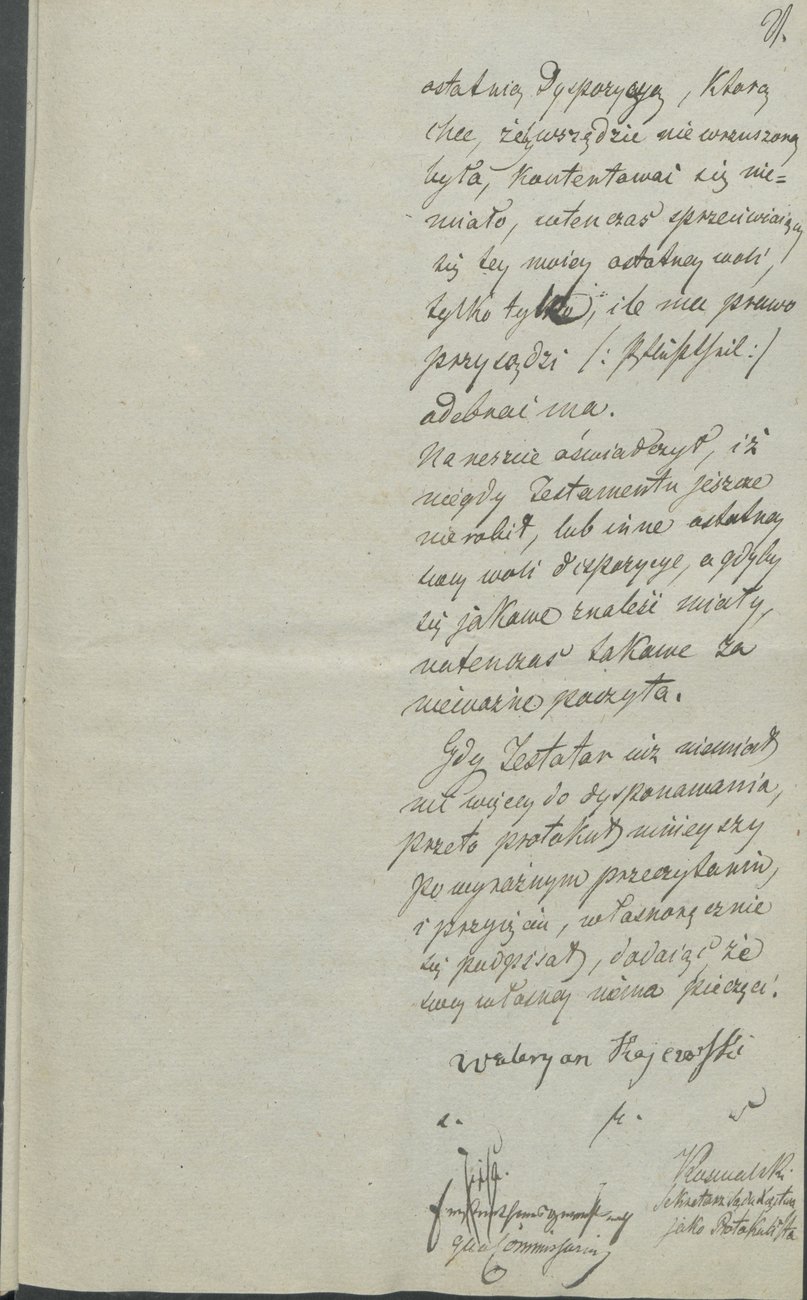 ostatnią Dyspozycyą, Ktorą
chce, żeby wszędzie niewzruszoną
była, Kontentować się nie=
miało, wtenczas sprzeciwiaiący
się tey moiey ostatney woli,
tylko tylko, ile mu prawo
przysądzi /: Pflichttheil :/
odebrać ma.
Na reszcie oświadczył, iż
niegdy Testamentu jeszcze
nie robił, lub inne ostatney
swey woli dispozycye, a gdyby
się jakowe znaleść miały,
natenczas takowe za
nieważne poczyta.
Gdy Testator iuż niemiał
nic więcey do dysponowania,
przeto protokuł ninieyszy
po wyraźnym przeczytaniu,
i przyięciu, własnoręcznie
się podpisał, dodaiąc że
swey własney niema pieczęci.
Waleryan Rajewski
a. u. s
Kosmalski
Sekretarz Sądu
jako Protokulista
qua Commissarius